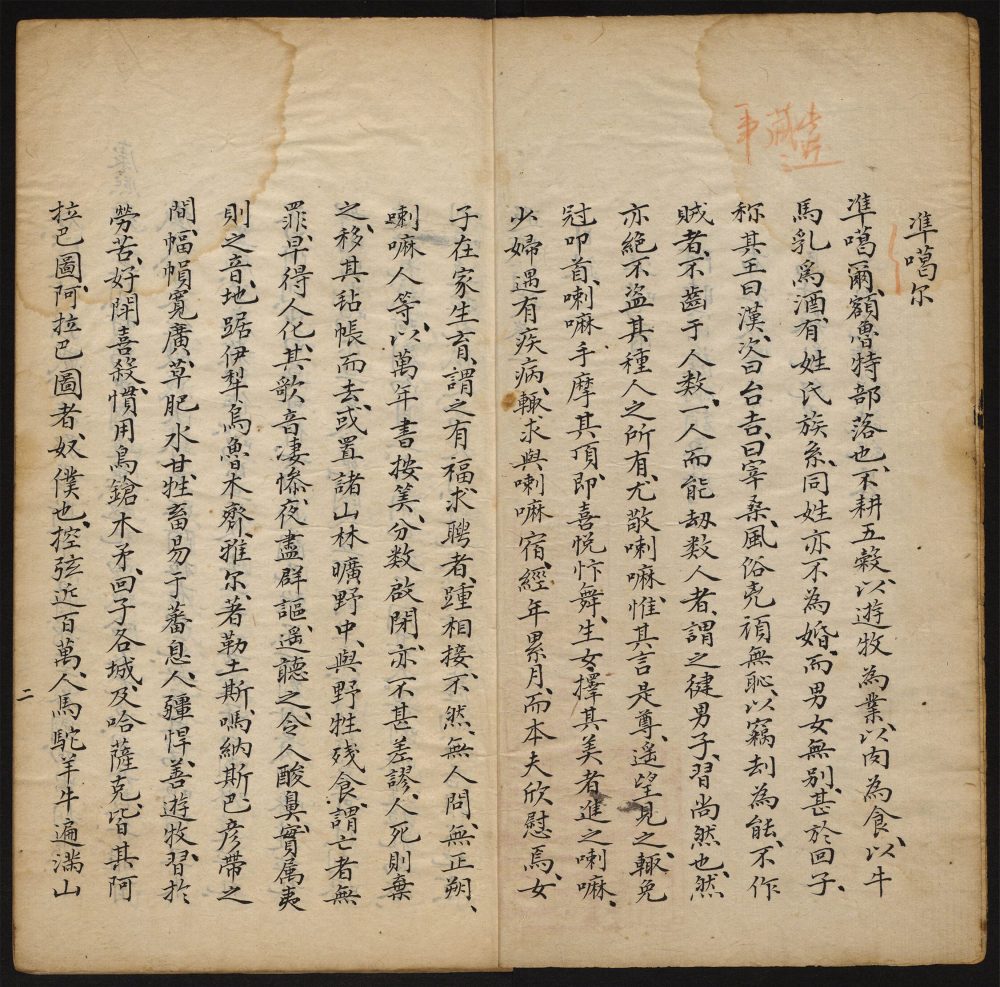 準噶尔
準噶爾、額魯特部落也、不耕五穀、以遊牧為業、以肉為食、以牛
馬乳爲酒、有姓氏族系、同姓亦不為婚、而男女無別、甚於回子、
称其王曰漢、次曰台吉、曰宰桑、風俗兇頑無恥、以竊刦為能、不作
賊者、不齒于人数、一人而能刼数人者、謂之健男子、習尚然也、然
亦絶不盗其種人之所有、尤敬喇嘛、惟其言是尊、遥望見之、輙免
冠叩首、喇嘛手摩其頂、即喜悦忭舞、生女、擇其美者進之喇嘛、
少婦遇有疾病、輙求與喇嘛宿、經年累月、而本夫欣慰焉、女
子在家生育、謂之有福、求聘者、踵相接、不然、無人問、無正朔、
喇嘛人等、以萬年書按筭、分数啟閉、亦不甚差謬、人死則棄
之、移其毡帳而去、或置諸山林曠野中、與野牲残食、謂亡者無
罪、早得人化、其歌音凄惨、夜盡群謳、遥聽之、令人酸鼻、實属夷
則之音、地踞伊犁、烏魯木齊、雅尔、著勒土斯、嗎納斯、巴彦帶之
間、幅幀寛廣、草肥水甘、牲畜易于蕃息、人彊悍、善遊牧、習於
勞苦、好鬦喜殺、慣用鳥鎗木矛、回子各城、及哈薩克、皆其阿
拉巴圖、阿拉巴圖者、奴僕也、控弦近百萬、人馬駝羊牛遍滿山
二